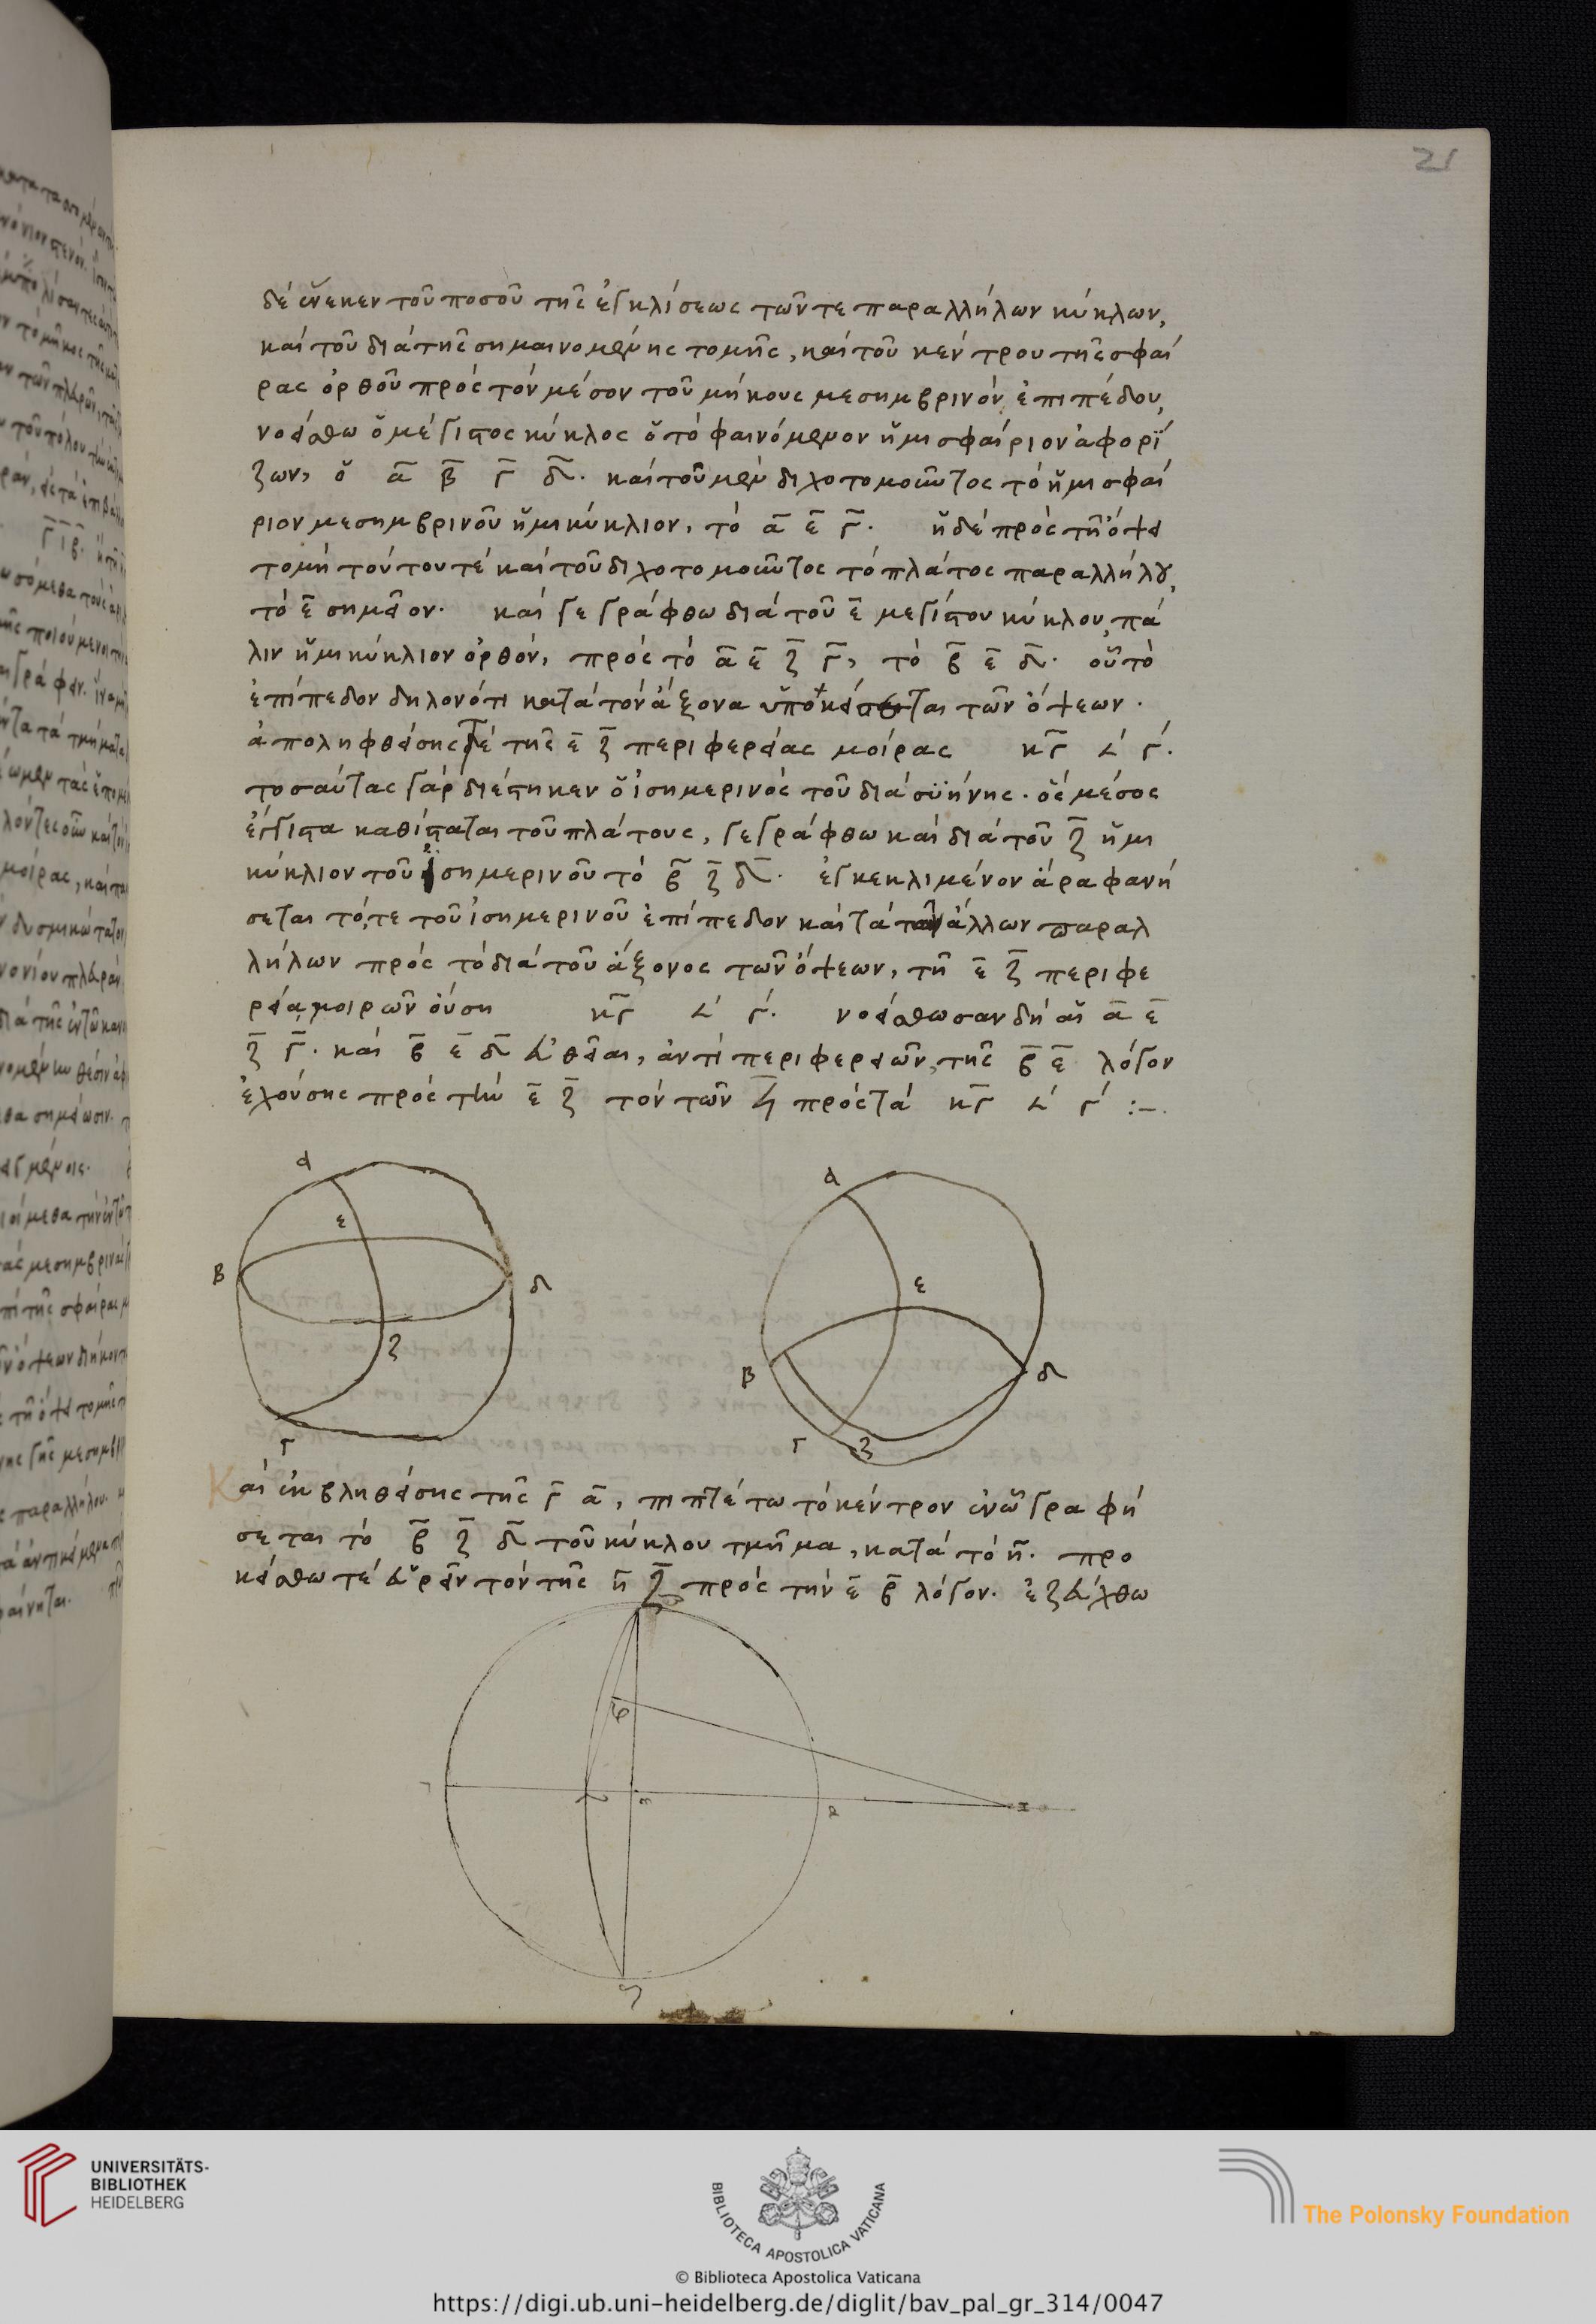 21
δὲ ἕνεκεν τοῦ ποσοῦ τῆς ἐγκλίσεως τῶν τε παραλλήλων κύκλων,
καὶ τοῦ διὰ τῆς σημαινομένης τομῆς, καὶ τοῦ κέντρου τῆς σφαί
ρας ὀρθοῦ πρὸς τὸν μέσον τοῦ μήκους μεσημβρινὸν ἐπιπέδου,
νοείσθω ὁ μέγιστος κύκλος ὁ τὸ φαινόμενον ἡμισφαίριον ἀφορί
ζων, ὁ α β γ δ. καὶ τοῦ μὲν διχοτομοῦντος τὸ ἡμισφαί
ριον μεσημβρινοῦ ἡμικύκλιον, τὸ α ε γ. ἡ δὲ πρὸς τῇ ὄψει
τομὴ τούτου τὲ καὶ τοῦ διχοτομοῦντος τὸ πλάτος παραλλήλου,
τὸ ε σημεῖον. καὶ γεγράφθω διὰ τοῦ ε μεγίστου κύκλου, πά
λιν ἡμικύκλιον ὀρθὸν, πρὸς τὸ α ε ζ γ, τὸ β ε δ. οὗ τὸ
ἐπίπεδον δηλονότι κατὰ τὸν ἄξονα ὑπόκειται τῶν ὄψεων.
ἀποληφθείσης τὲ τῆς ε ζ περιφερείας μοίρας κγ 𐅵 γ.
τοσαύτας γὰρ διέστηκεν ὁ ἰσημερινὸς τοῦ διὰ συήνης. ὃς μέσος
ἔγγιστα καθίσταται τοῦ πλάτους, γεγράφθω καὶ διὰ τοῦ ζ ἡμι
κύκλιον τοῦ ἰσημερινοῦ τὸ β ζ δ. ἐγκεκλιμένον ἄρα φανή
σεται τό, τε τοῦ ἰσημερινοῦ ἐπίπεδον καὶ τὰ τῶν ἄλλων παραλ
λήλων πρὸς τὸ διὰ τοῦ ἄξονος τῶν ὄψεων, τῇ ε ζ περιφε
ρείᾳ μοιρῶν οὔση κγ 𐅵 γ. νοείσθωσαν δὴ αἱ α ε
ζ γ. καὶ β ε δ εὐθεῖαι, ἀντὶ περιφερειῶν, τῆς β ε λόγον
ἐχούσης πρὸς τὴν ε ζ τὸν τῶν ϟ πρὸς τὰ κγ 𐅵 γ :-
α
ε
β
δ
ζ
γ
α
ε
β
δ
γ
ζ
Καὶ ἐκβληθείσης τῆς γ α, πιπτέτω τὸ κέντρον ἐν ᾧ γραφή
σεται τὸ β ζ δ τοῦ κύκλου τμῆμα, κατὰ τὸ η. προ
κείσθω τὲ εὑρεῖν τὸν τῆς η ζ πρὸς τὴν ε β λόγον. ἐζεύχθω
UNIVERSITÄTS-
BIBLIOTHEK
HEIDELBERG
BIBLIOTECA APOSTOLICA VATICANA
The Polonsky Foundation
© Biblioteca Apostolica Vaticana
https://digi.ub.uni-heidelberg.de/diglit/bav_pal_gr_314/0047